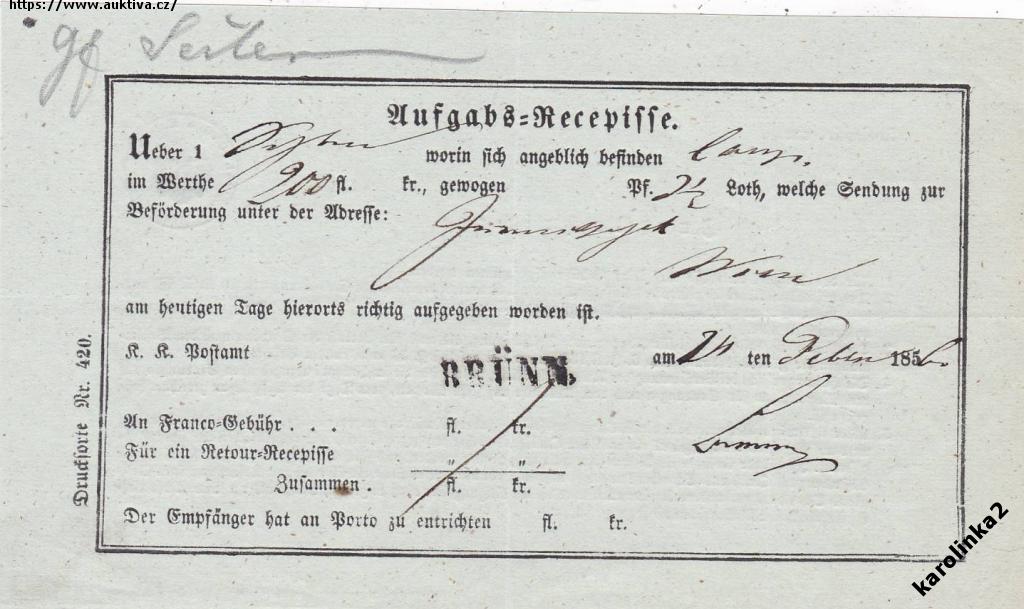 https://www.auktiva.cz/
Aufgabs-Recepisse.
Ueber 1 worin sich angeblich befinden
im Werthe 200 fl. kr., gewogen Pf. 2½ Loth, welche Sendung zur
Beförderung unter der Adresse:
Wien
am heutigen Tage hierorts richtig aufgegeben worden ist.
K. K. Postamt BRÜNN. am ten Feber 1856
An Franco-Gebühr . . . fl. kr.
Für ein Retour-Recepisse " "
Zusammen . fl. kr.
Der Empfänger hat an Porto zu entrichten fl. kr.
Drucksorte Nr. 420.
karolinka2